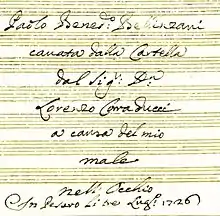 Paolo Bened: Bellinzani
cavata dalla Cartella
dal Sig: D:
Lorenzo Corraducci
a causa del mio
male
nell Occhio
In Pesaro li tre Lug: 1726